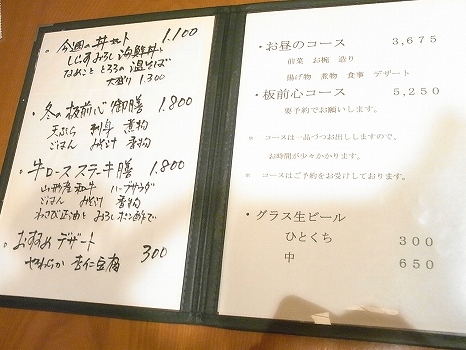 ・今週の丼セット 1.100
しらすみぞれ海鮮丼と
なめことろろの温そば
大盛り 1.300
・冬の板前心御膳 1.800
天ぷら 刺身 煮物
ごはん みそ汁 香物
・牛ロースステーキ膳 1.800
山形産和牛 ハーフサラダ
ごはん みそ汁 香物
わさび正油とみぞれポン酢で
・おすすめデザート
やわらか 杏仁豆腐 300
・お昼のコース 3,675
前菜 お椀 造り
揚げ物 煮物 食事 デザート
・板前心コース 5,250
要予約でお願いします。
※ コースは一品づつお出ししますので、
お時間が少々かかります。
※ コースはご予約をお受けしております。
・グラス生ビール
ひとくち 300
中 650